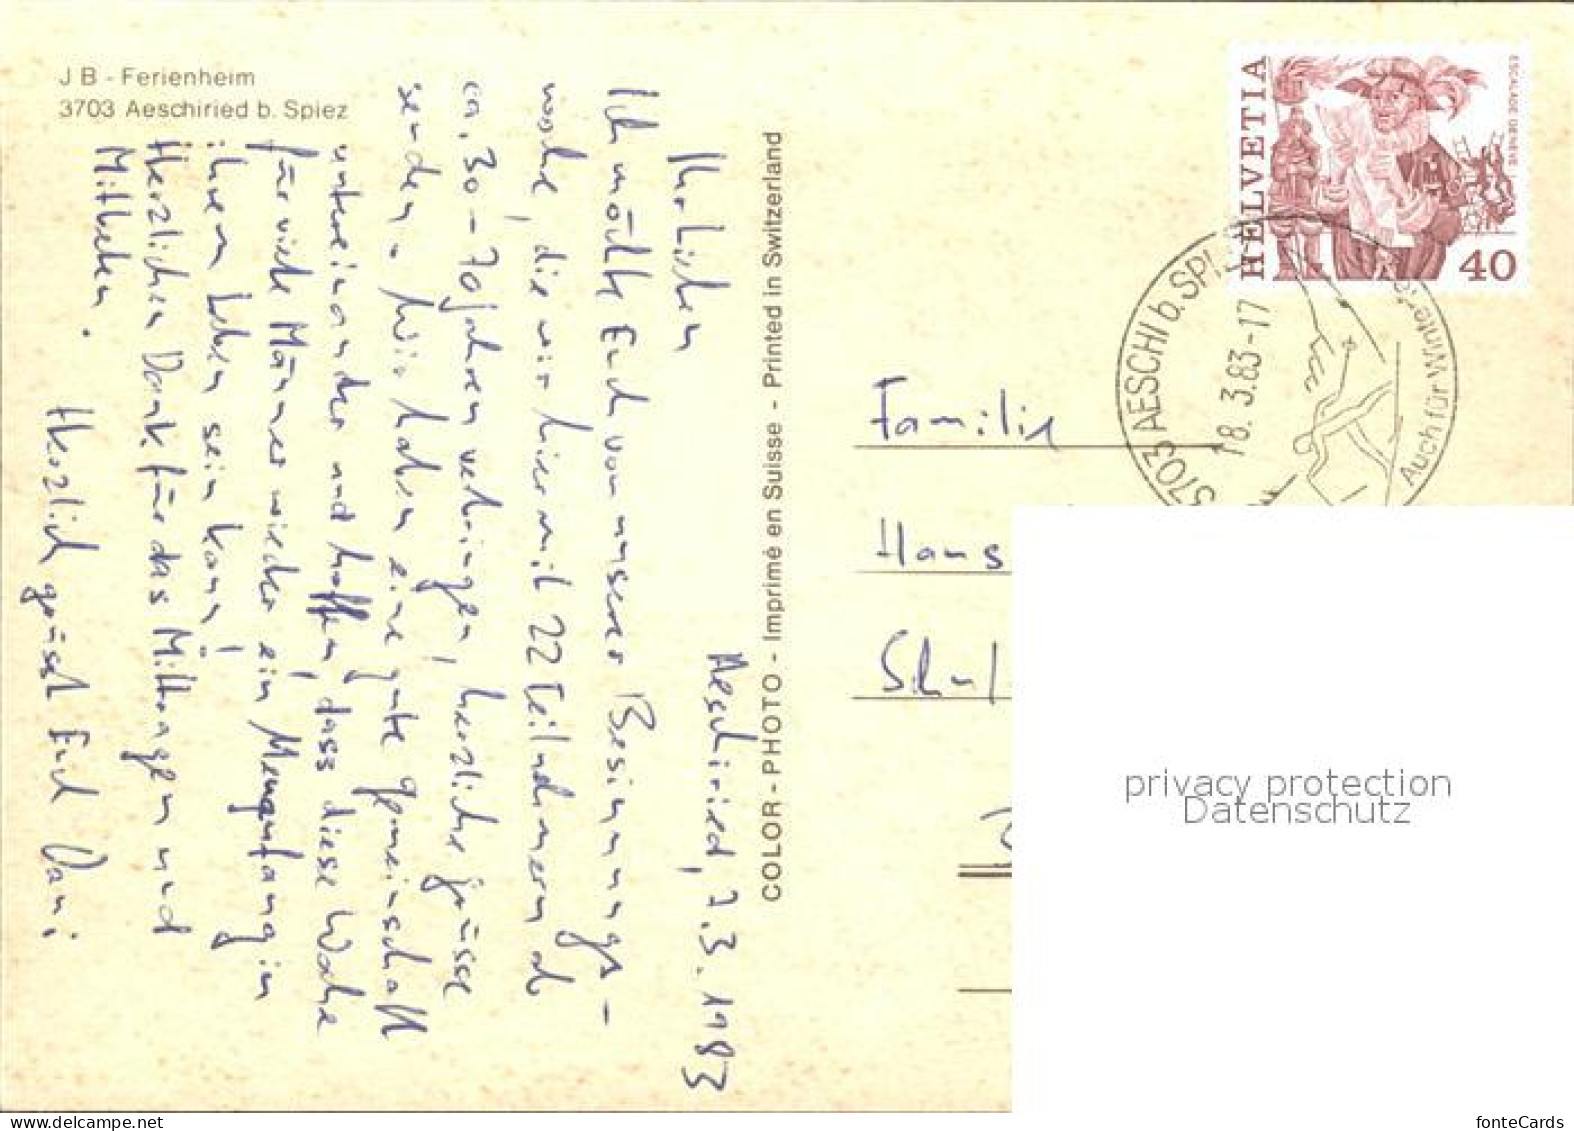 J B - Ferienheim
3703 Aeschiried b. Spiez
Aeschiried, 7.3.1983
Ihr Lieben
Ich möchte Euch von unserer Besinnungs-
woche, die wir hier mit 22 Teilnehmern ab
ca. 30-70 Jahren verbringen, herzliche Grüsse
senden. Wir haben eine gute Gemeinschaft
untereinander und hoffen, dass diese Woche
für viele Männer wieder ein Neuanfang in
ihrem Leben sein kann!
Herzlichen Dank für das Mittragen und
Mitbeten.
Herzlich grüsst Euch Dani
COLOR-PHOTO - Imprimé en Suisse - Printed in Switzerland
HELVETIA
ESCALADE GENÈVE
40
3703 AESCHI b. SPIEZ
18.3.83-17
Auch für Winter
Familie
Hans
privacy protection
Datenschutz
fonteCards